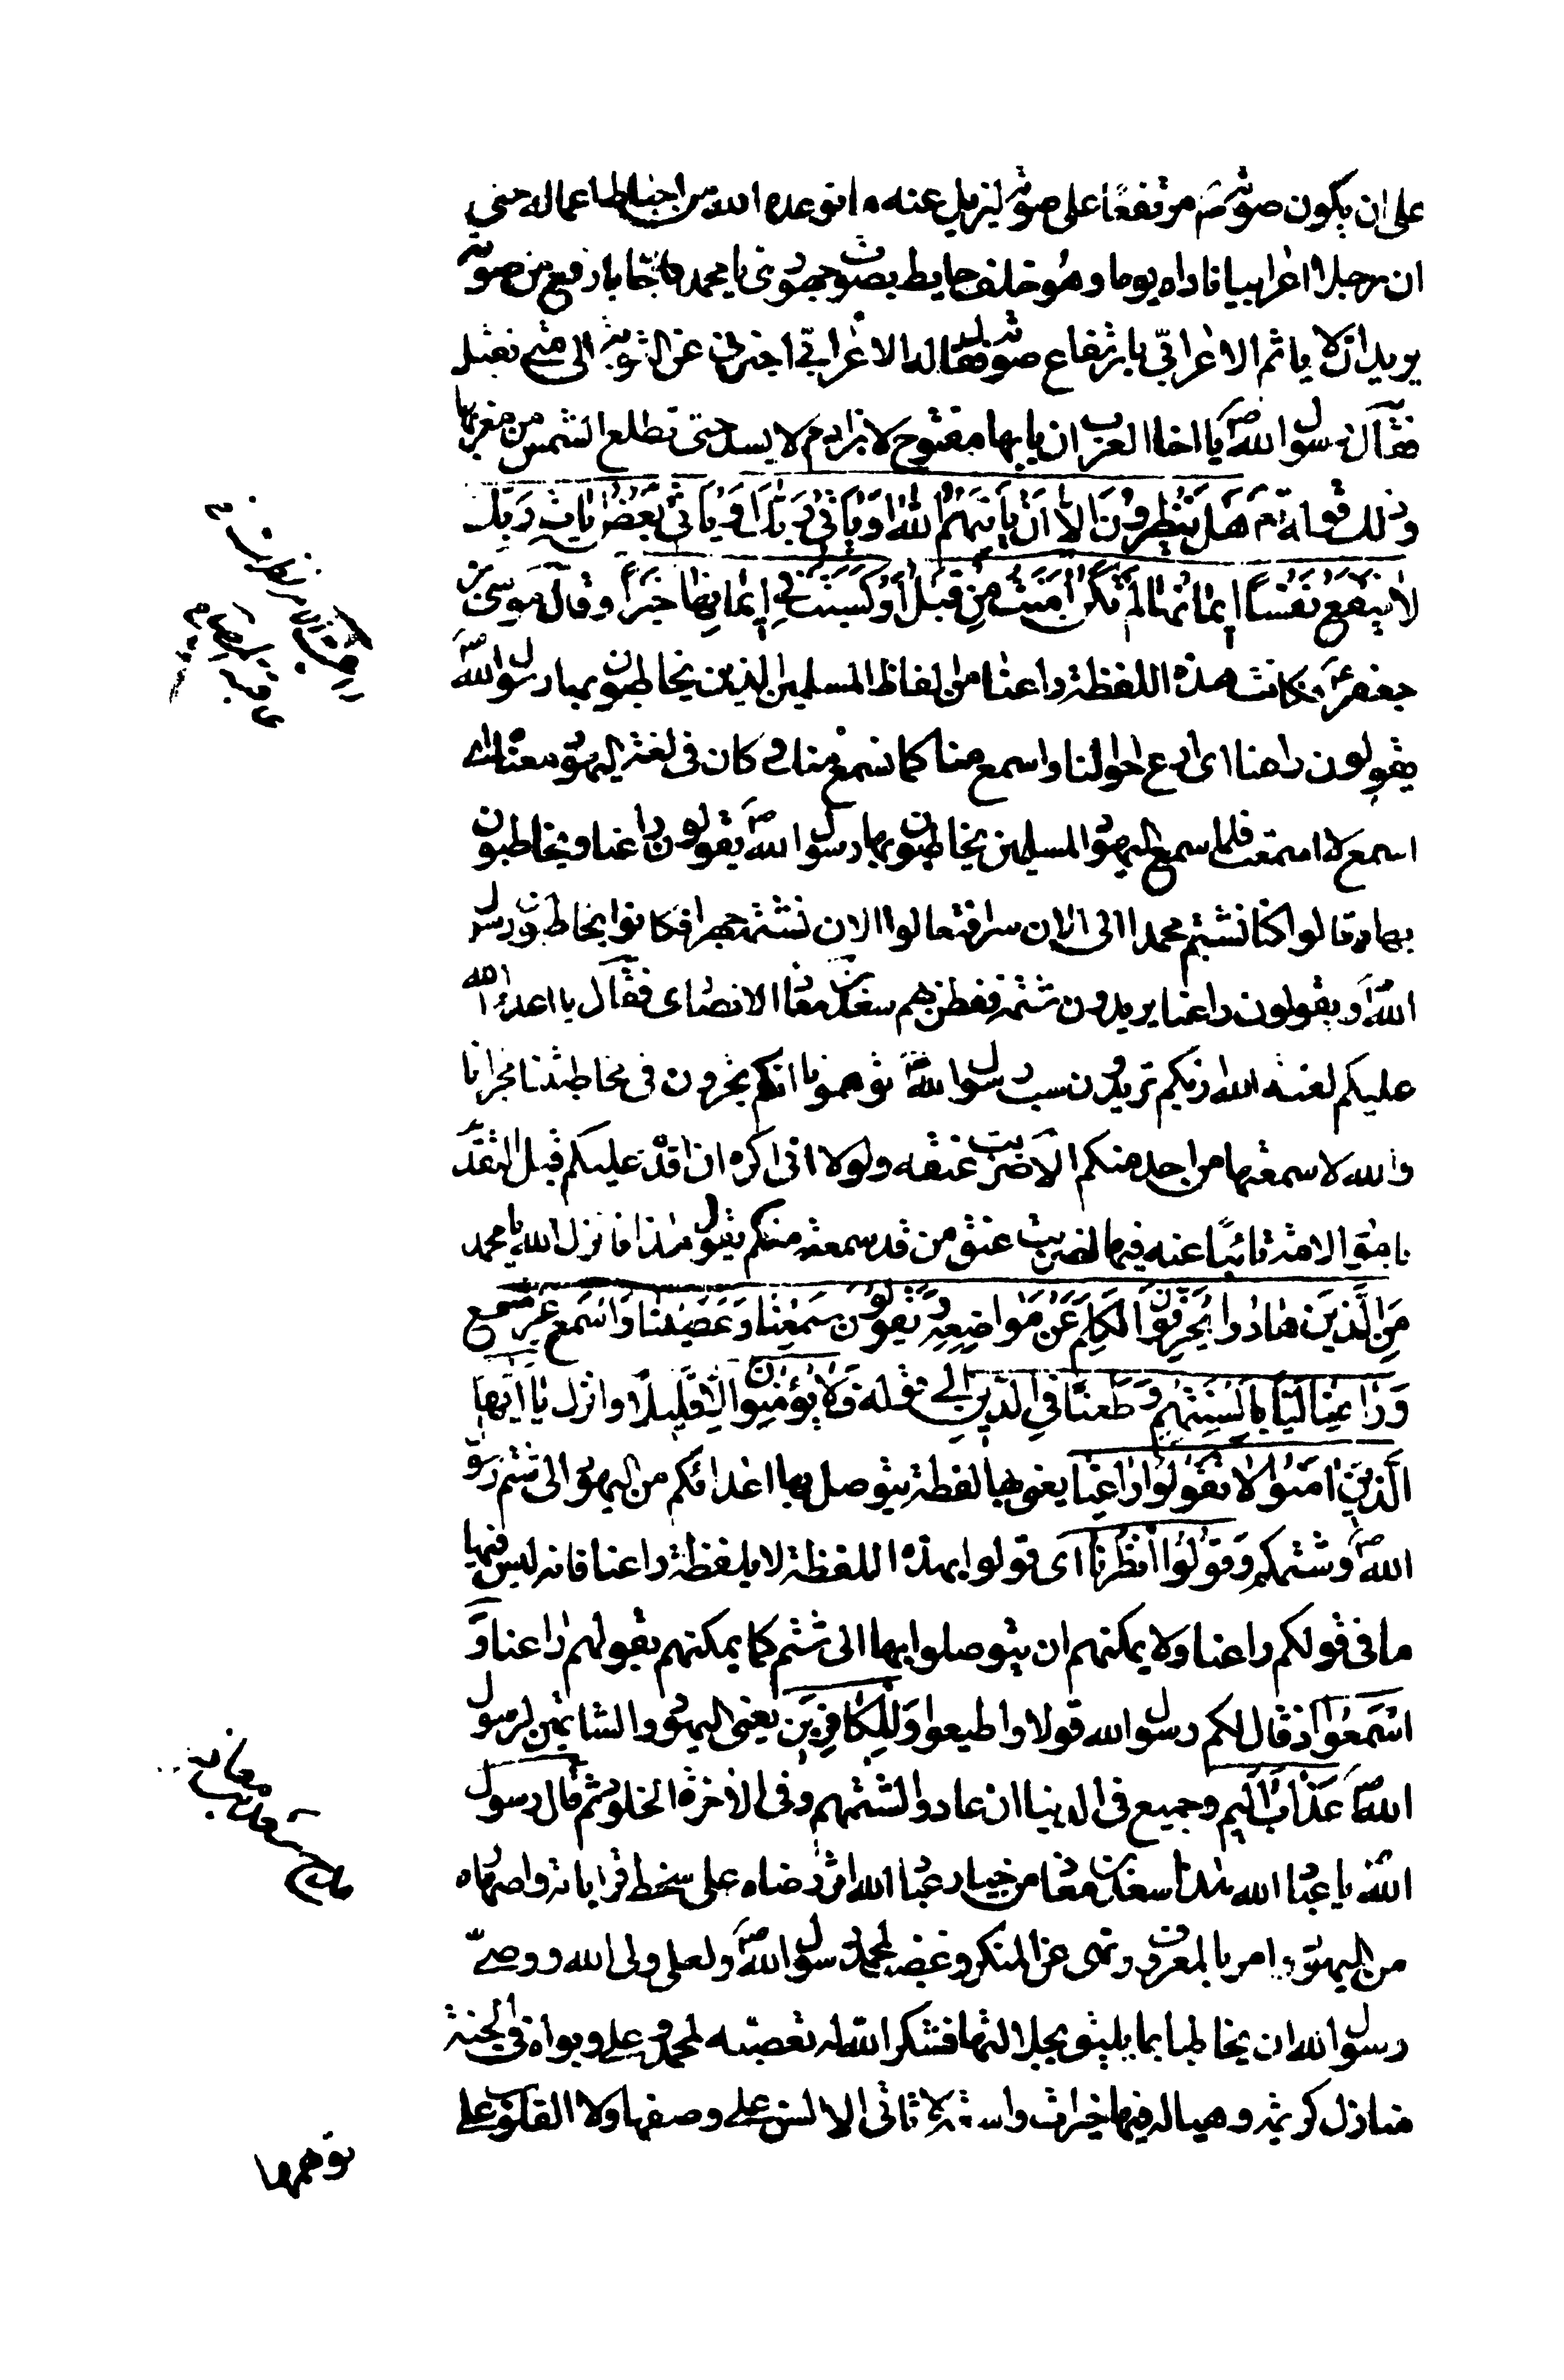 على ان يكون صوته م مرتفعًا على صوته ليزيل عنه ما توعده الله من احباط اعماله حتى
ان رجلا اعرابيا ناداه يوما وهو خلف حايط بصوت جهورى يا محمد فاجابه بارفع من صوته
يريد ان لا ياثم الاعرابّي بارتفاع صوته فقال له الاعرابي اخبرنى عن التوبة الى متى تقبل
فقال رسول الله ص يا اخا العرب ان بابها مفتوح لابن ادم لا يسد حتى تطلع الشمس من مغربها
وذلك قوله تع هَلْ يَنْظُرُونَ اِلاّٰ اَنْ يَأتِيَهُمُ اللّٰهُ اَوْ يَأتِىَ رَبُّكَ اَوْ يَأتِىَ بَعْضُ اٰيٰاتِ رَبِّكَ
لاٰ يَنْفَعُ نَفْسًا اِيمٰانُهٰا لَمْ تَكُنْ اٰمَنَتْ مِنْ قَبْلُ اَوْ كَسَبَتْ فِي اِيمٰانِهٰا خَيْرًا وقال موسى بن
جعفر ع وكانت هذه اللفظة راعنا من الفاظ المسلمين الذين يخاطبون بها رسول الله ص
يقولون راعنا اى ارع احوالنا واسمع منا كما نسمع منك وكان فى لغة اليهود معناه اى
اسمع لا سمعت فلما سمع اليهود المسلمين يخاطبون بها رسول الله ص يقولون راعنا ويخاطبون
بها قالوا كنا نشتم محمدا الى الان سرا فتعالوا الان نشتمه جهرا فكانوا يخاطبون رسول
الله ص ويقولون راعنا يريدون شتمه ففطن بهم سعد بن معاذ الانصارى فقال يا اعداء الله
عليكم لعنة الله اريكم تريدون سب رسول الله ص توهمونا انكم تجرون فى مخاطبته مجرانا
والله لا سمعتها من احد منكم الاّ ضربت عنقه ولولا انى اكره ان اقدم عليكم قبل التقدّم
بامور الامة نائبًا عنه فيها لضربت عنق من قد سمعته منكم يقول هذا فانزل الله يا محمد
مِنَ الَّذينَ هٰادُوا يُحَرِّفُونَ الْكَلِمَ عَنْ مَوٰاضِعِهِ وَ يَقُولُونَ سَمِعْنٰا وَ عَصَيْنٰا وَ اسْمَعْ غَيْرَ مُسْمَعٍ
وَ رٰاعِنٰا لَيًّا بِاَلْسِنَتِهِمْ وَ طَعْنًا فِي الدّينِ الى قوله فَلاٰ يُؤْمِنُونَ اِلاّٰ قَليلًا وانزل يٰا اَيُّهَا
الَّذينَ اٰمَنُوا لاٰ تَقُولُوا رٰاعِنٰا يعنى فانها لفظة يتوصل بها اعدائكم من اليهود الى شتم رسول
الله ص وشتمكم وَقُولُوا انْظُرْنٰا اى قولوا بهذه اللفظة لا بلفظة راعنا فانه ليس فيها
ما فى قولكم راعنا ولا يمكنهم ان يتوصلوا بها الى شتم كما يمكنهم بقولهم راعنا وَ
اسْمَعُوا اذ قال لكم رسول الله قولا واطيعوا وَ لِلْكٰافِرِينَ يعنى اليهود الشاتمين لرسول
الله ص عَذٰابٌ اَلِيمٌ وجميع فى الدنيا ان عادوا لشتمهم وفى الاخرة الخلود ثم قال رسول
الله ص يا عباد الله هذا سعد بن معاذ من خيار عباد الله اثر رضاه على سخط قراباته واصهاره
من اليهود وامر بالمعروف ونهى عن المنكر وغضب لمحمد رسول الله ص ولعلى ولى الله ووصىّ
رسول الله ان يخاطبا بما يليق بجلالتهما فشكر الله له تعصبه لمحمد وعلى وبواه فى الجنة
منازل كريمة وهيا له فيها خيرات واسعة لا تاتى الالسن على وصفها ولا القلوب على
توهمها
مدح سعد بن معاذ